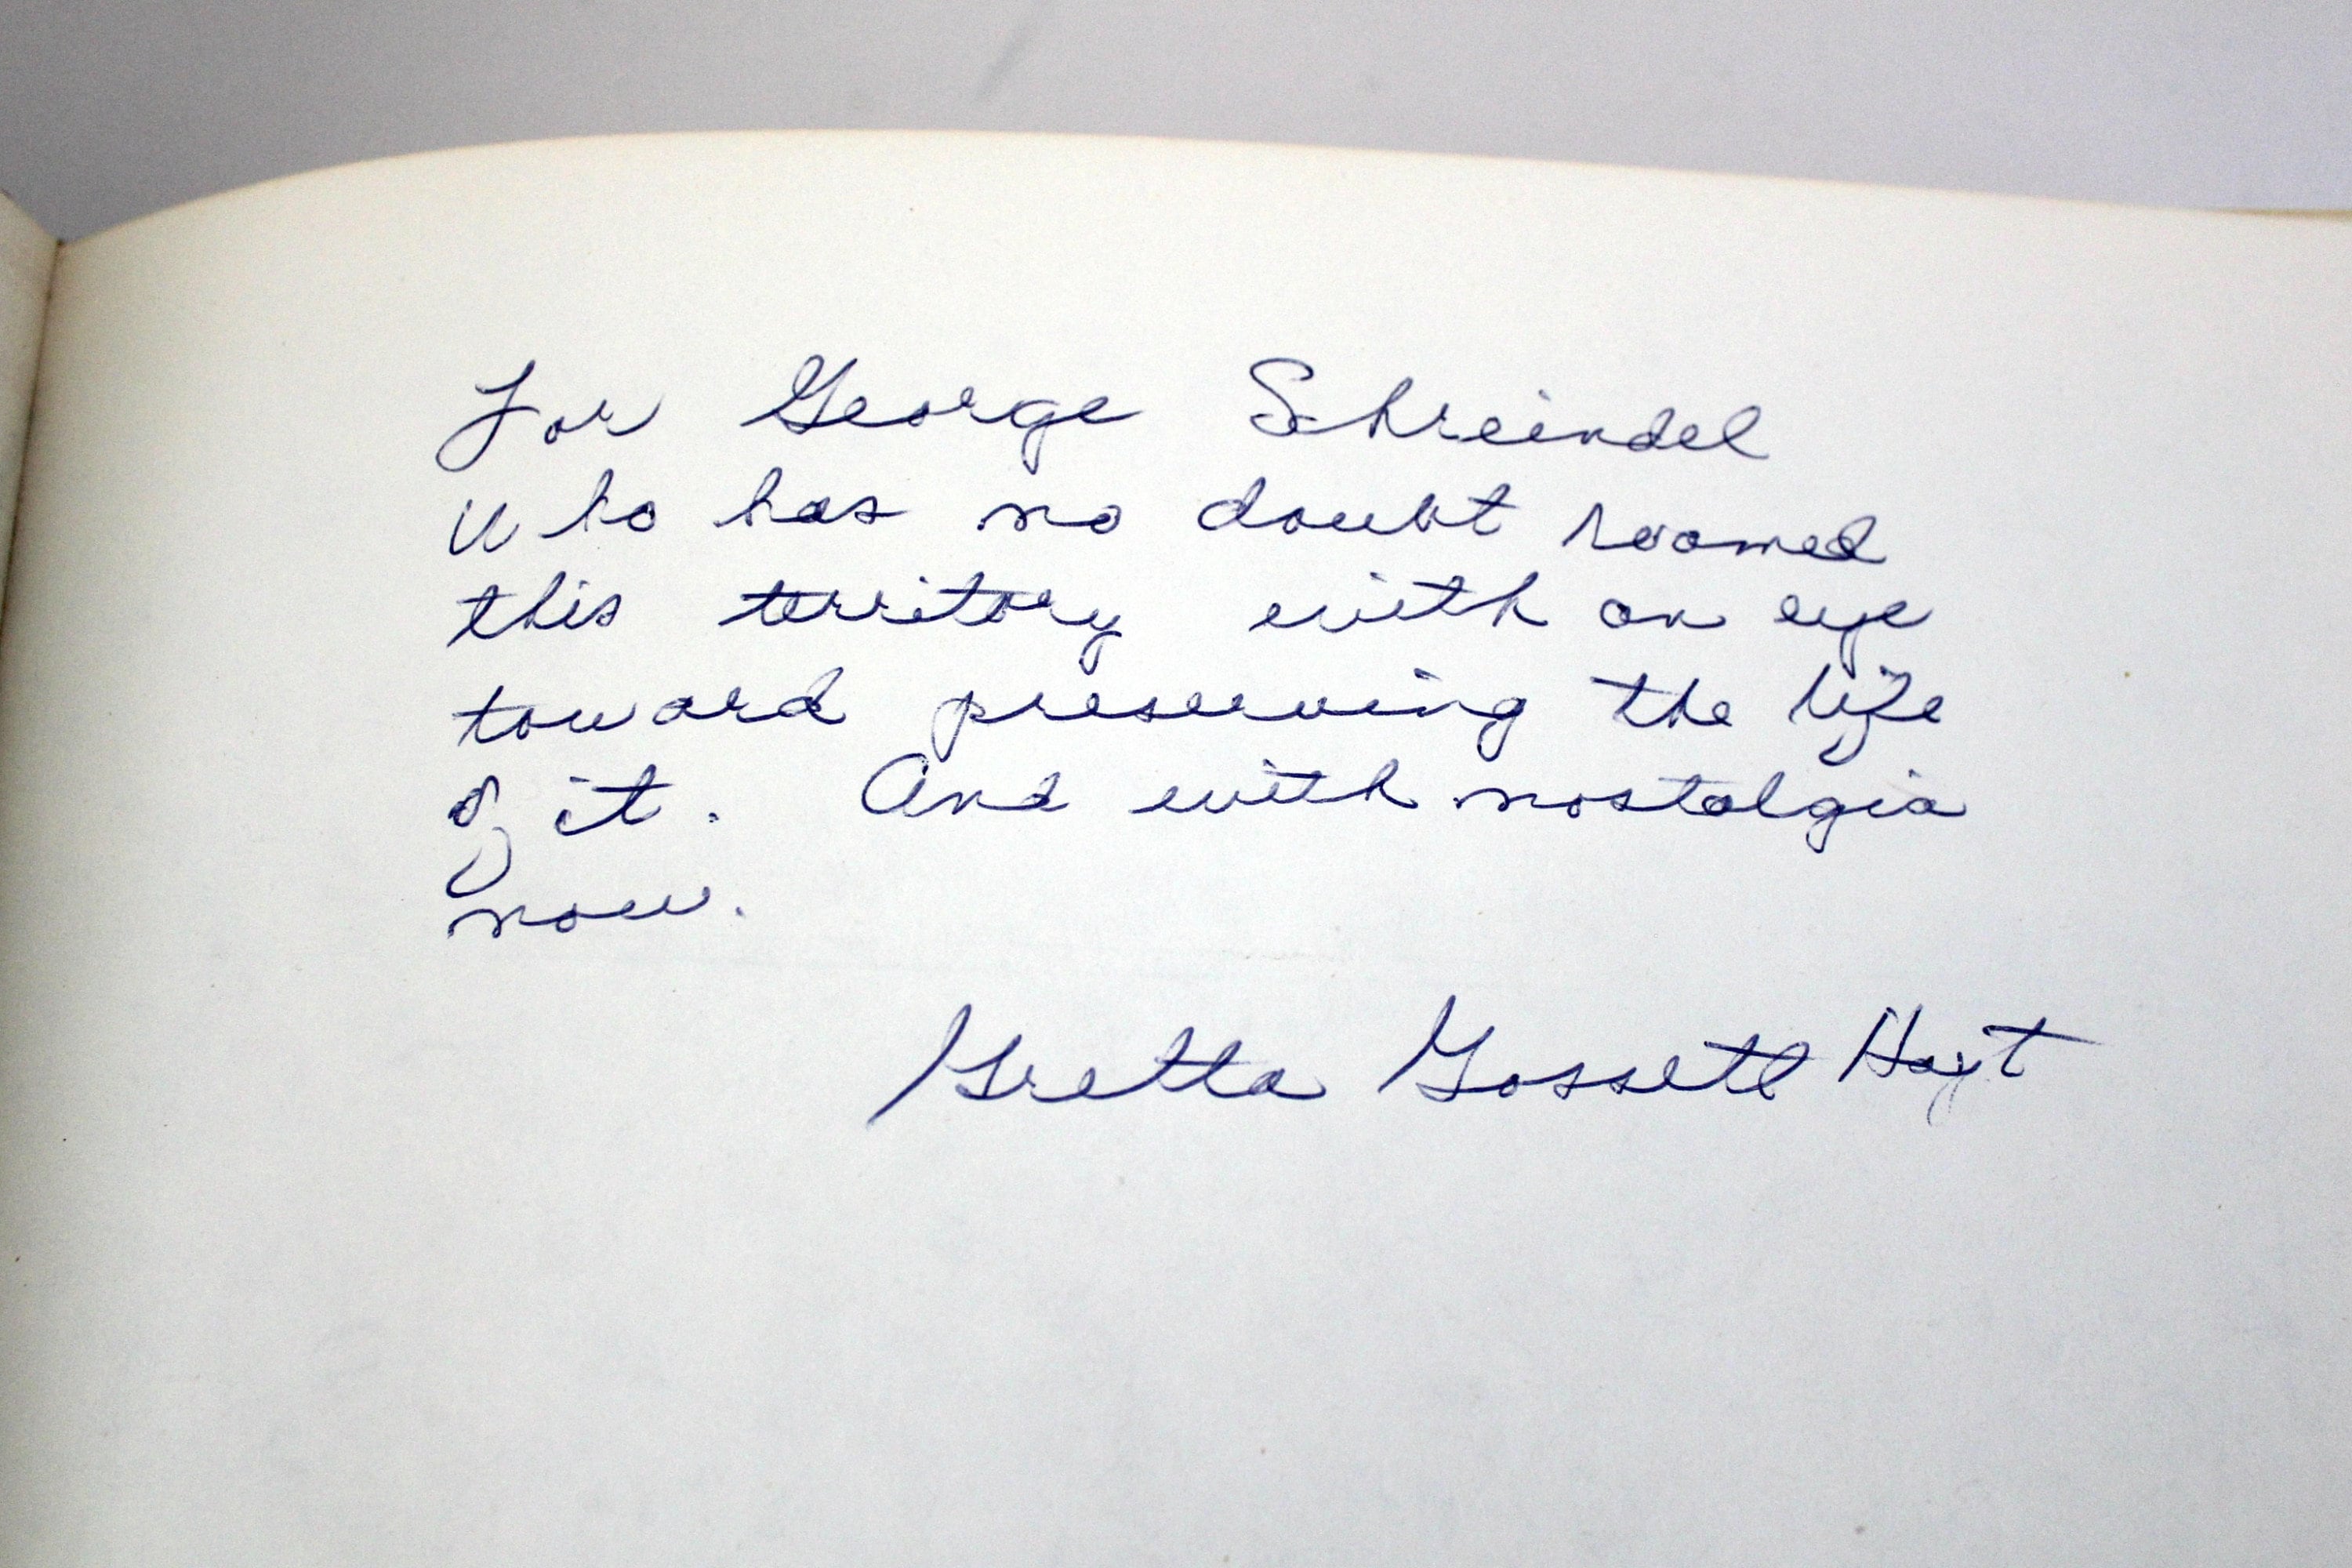 For George Schreindel
who has no doubt roamed
this territory with an eye
toward preserving the life
of it. And with nostalgia
now.
Gretta Gossett Hoyt